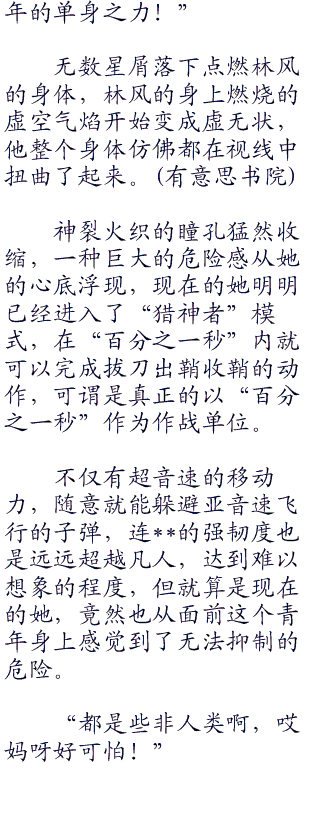 年的单身之力！”
无数星屑落下点燃林风
的身体，林风的身上燃烧的
虚空气焰开始变成虚无状，
他整个身体仿佛都在视线中
扭曲了起来。(有意思书院)
神裂火织的瞳孔猛然收
缩，一种巨大的危险感从她
的心底浮现，现在的她明明
已经进入了“猎神者”模
式，在“百分之一秒”内就
可以完成拔刀出鞘收鞘的动
作，可谓是真正的以“百分
之一秒”作为作战单位。
不仅有超音速的移动
力，随意就能躲避亚音速飞
行的子弹，连**的强韧度也
是远远超越凡人，达到难以
想象的程度，但就算是现在
的她，竟然也从面前这个青
年身上感觉到了无法抑制的
危险。
“都是些非人类啊，哎
妈呀好可怕！”